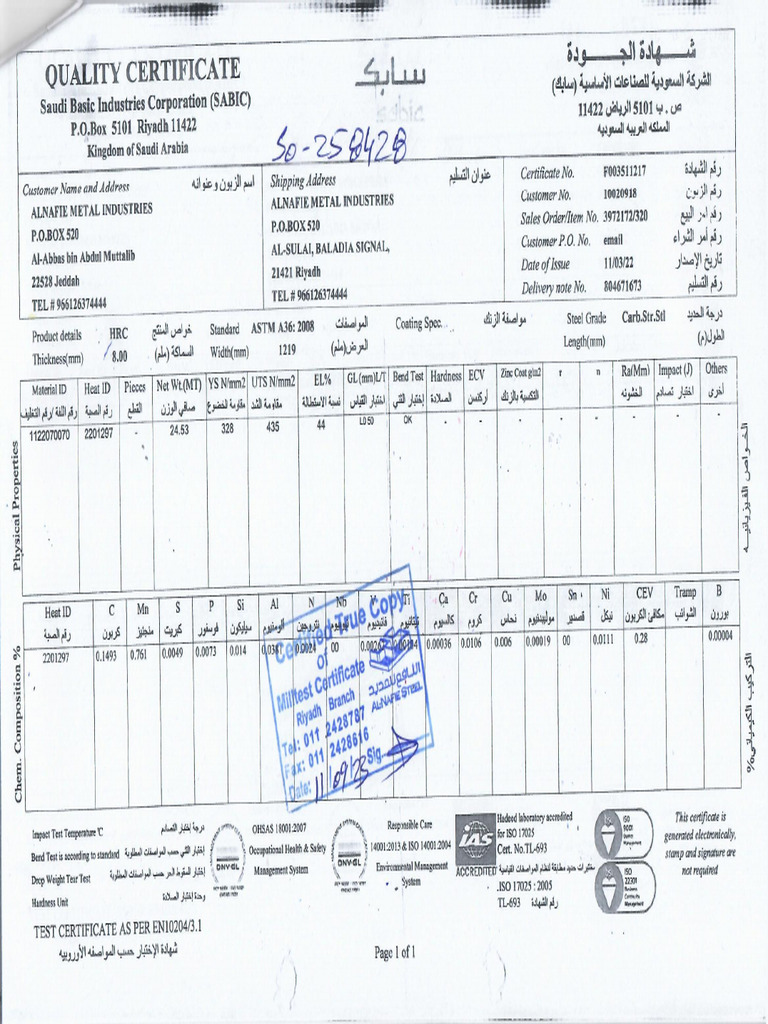 QUALITY CERTIFICATE
Saudi Basic Industries Corporation (SABIC)
P.O.Box 5101 Riyadh 11422
Kingdom of Saudi Arabia
سابك
شهادة الجودة
الشركة السعودية للصناعات الأساسية (سابك)
ص . ب 5101 الرياض 11422
المملكه العربيه السعوديه
So-258428
Customer Name and Address اسم الزبون وعنوانه
ALNAFIE METAL INDUSTRIES
P.O.BOX 520
Al-Abbas bin Abdul Muttalib
22528 Jeddah
TEL # 966126374444
Shipping Address عنوان التسليم
ALNAFIE METAL INDUSTRIES
P.O.BOX 520
AL-SULAI, BALADIA SIGNAL,
21421 Riyadh
TEL # 966126374444
Certificate No. F003511217 رقم الشهادة
Customer No. 10020918 رقم الزبون
Sales Order/Item No. 3972172/320 رقم امر البيع
Customer P.O. No. email رقم أمر الشراء
Date of Issue 11/03/22 تاريخ الإصدار
Delivery note No. 804671673 رقم التسليم
Product details HRC خواص المنتج Standard ASTM A36: 2008 المواصفات Coating Spec. مواصفة الزنك Steel Grade Carb.Str.Stl درجة الحديد
Thickness(mm) 8.00 السماكة (ملم) Width(mm) 1219 العرض(ملم) Length(mm) الطول(م)
Physical Properties
Material ID Heat ID Pieces Net Wt.(MT) YS N/mm2 UTS N/mm2 EL% GL (mm)L/T Bend Test Hardness ECV Zinc Coat g/m2 r n Ra(Mm) Impact (J) Others
رقم الصبة القطع صافي الوزن مقاومة الخضوع مقاومة الشد نسبة الاستطالة اختبار القياس إختبار الثني الصلادة أركنسن التكسية بالزنك الخشونه اختبار تصادم أخرى
1122070070 2201297 - 24.53 328 435 44 L0 50 OK - - - - - - - -
الخواص الفيزيائيه
Chem. Composition %
Heat ID C Mn S P Si Al N Nb V Ti Ca Cr Cu Mo Sn Ni CEV Tramp B
رقم الصبة كربون منجنيز كبريت فوسفور سيليكون ألومنيوم نتروجين فناديوم تيتانيوم كالسيوم كروم نحاس موليبدنيوم قصدير نيكل مكافئ الكربون الشوائب بورون
2201297 0.1493 0.761 0.0049 0.0073 0.014 0.0024 00 0.00036 0.0106 0.006 0.00019 00 0.0111 0.28 0.00004
التركيب الكيميائي%
Certified True Copy
of
Milltest Certificate
Riyadh Branch
Tel: 011 2428787
Fax: 011 2428616
Date: 11/09/23 Sig.
النافع للحديد
ALNAFIE STEEL
Impact Test Temperature °C درجة إختبار التصادم
Bend Test is according to standard إختبار الثني حسب المواصفات المطلوبة
Drop Weight Tear Test إختبار السقوط الحر حسب المواصفات المطلوبة
Hardness Unit وحدة إختبار الصلادة
DNV·GL
OHSAS 18001:2007
Occupational Health & Safety
Management System
DNV·GL
Responsible Care
14001:2013 & ISO 14001:2004
Environmental Management
System
IAS
ACCREDITED
Hadeed laboratory accredited
for ISO 17025
Cert. No.TL-693
مختبرات حديد مطابقة لنظام المواصفات القياسية
ISO 17025 : 2005.
TL-693 رقم الشهادة
ISO
9001
ISO
22301
Business
Continuity
Management
This certificate is
generated electronically,
stamp and signature are
not required
TEST CERTIFICATE AS PER EN10204/3.1
شهادة الإختبار حسب المواصفه الأوروبيه
Page 1 of 1